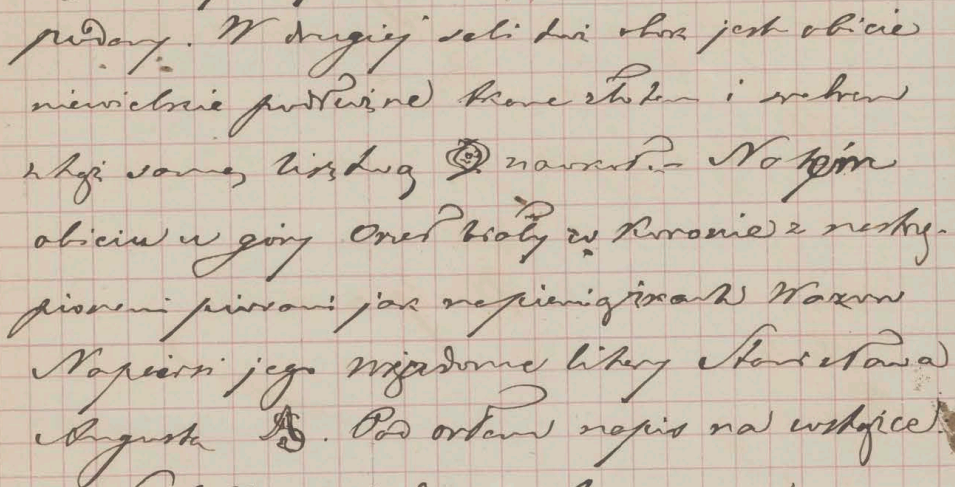 podany. W drugiej sali też obok jest obicie
niewielkie podłużne tkane złotem i srebrem
z tąż samą wstęgą na około. Na tym
obiciu u góry Orzeł biały w Koronie z nastrę-
pionemi piórami jak na pieniążkach Wazów
Na piersi jego wijadome litery Stanisława
Augusta AS. Pod orłem napis na wstążce.